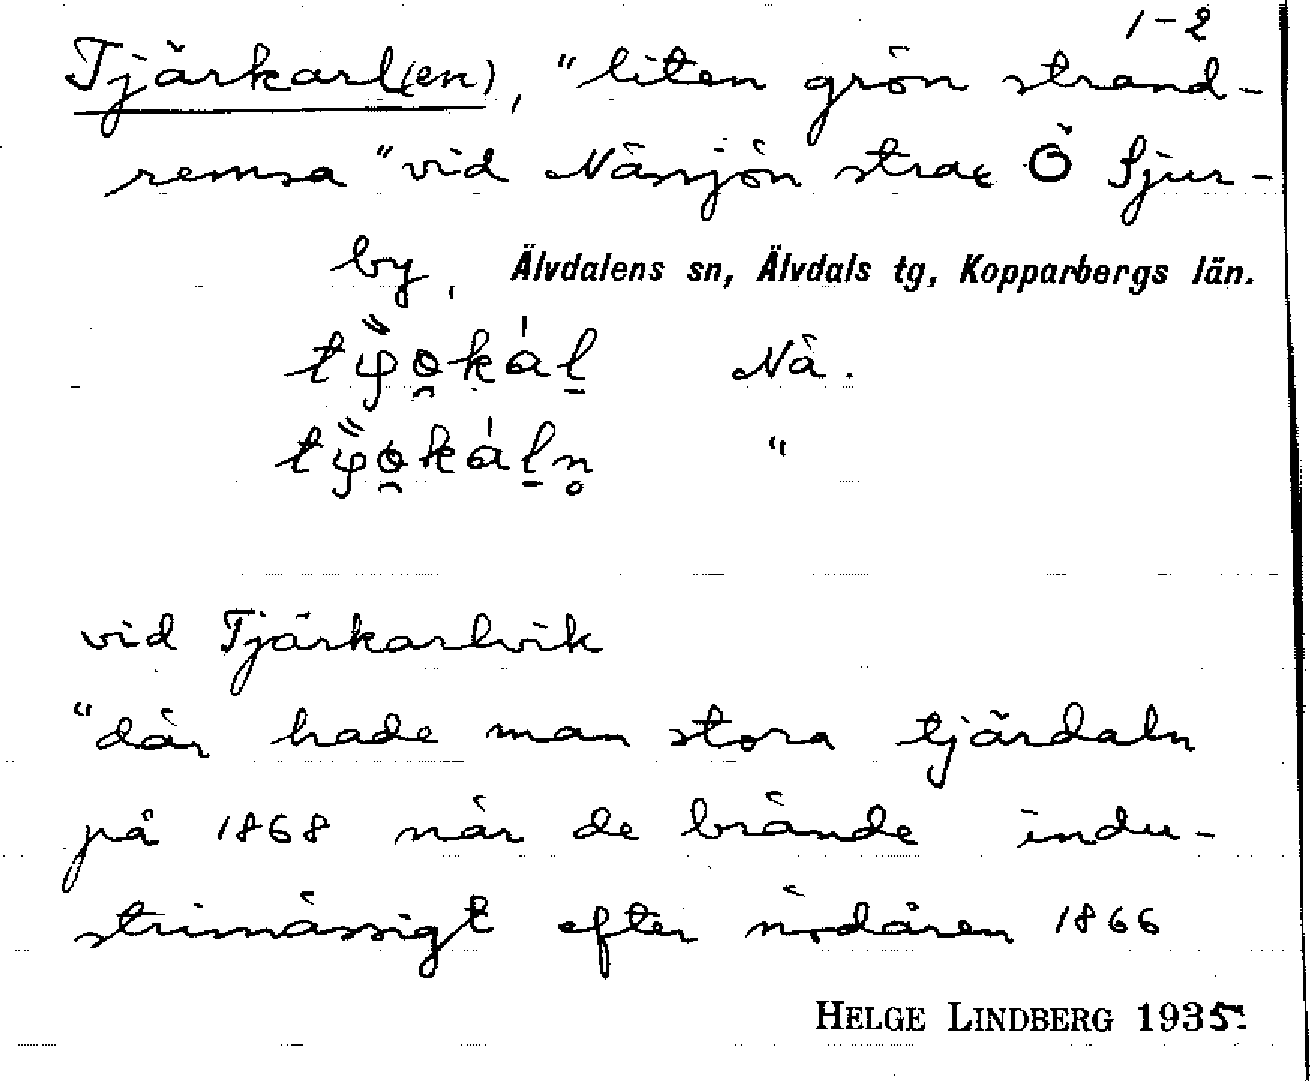 1-2
Tjärkarl(en), "liten grön strand-
remsa" vid Nässjön strax Ö Sjur-
by, Älvdalens sn, Älvdals tg, Kopparbergs län.
Nä.
"
vid Tjärkarlvik
"där hade man stora tjärdaln
på 1868 när de brände indu-
strimässigt efter nödåren 1866
HELGE LINDBERG 1935